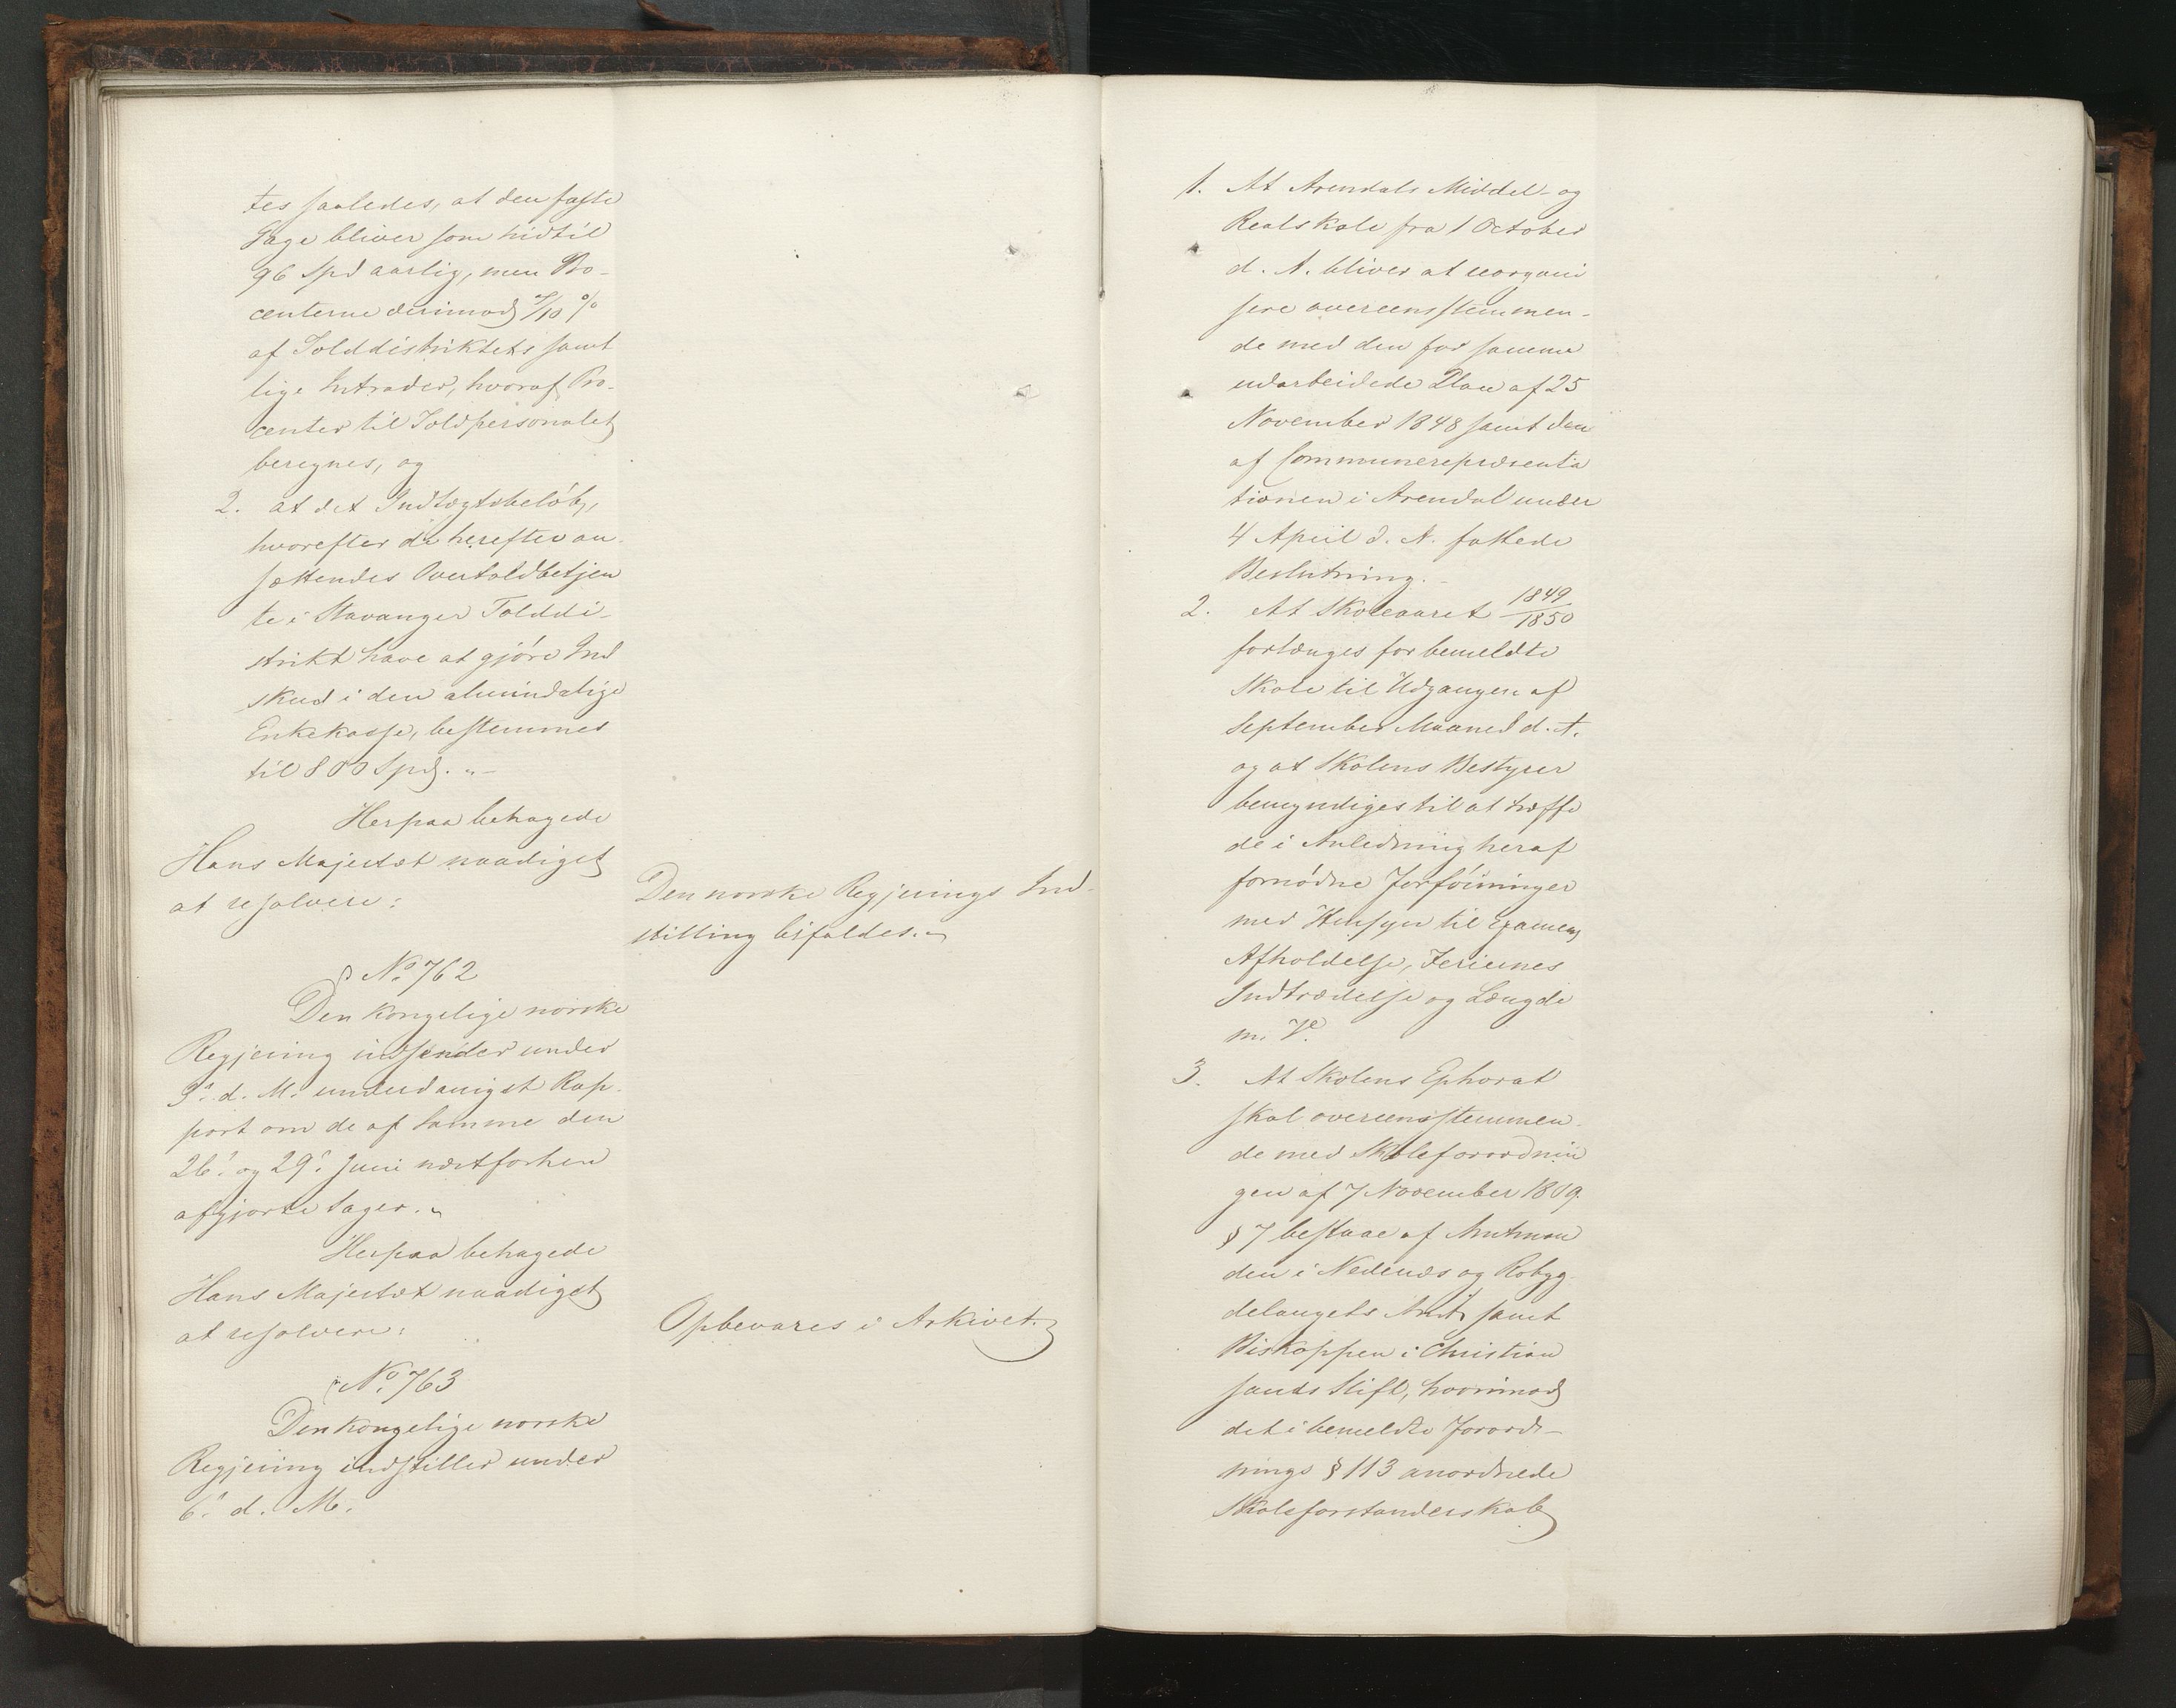 tes saaledes, at den faste
Gage bliver som hidtil
96 Spd aarlig, men Pro-
centerne derimod 7/10 %
af Tolddistriktets samt
lige Intrader, hvoraf Pro-
center til Toldpersonalet
beregnes, og
2. at det Indtægtsbeløb,
hvorefter de herefter an-
sættendes Overtoldbetjen
te i Stavanger Tolddi-
strikt have at gjöre Ind
skud i den almindelige
Enkekasse, bestemmes
til 800 Spd. "-
Herpaa behagede
Hans Majestæt naadigst
at resolvere:
Den norske Regjerings Ind-
stilling bifaldes.
No. 762
Den kongelige norske
Regjering indsender under
3. d. M. underdanigst Rap-
port om de af samme den
26. og 29. Juni næstforhen
afgjorte Sager.
Herpaa behagede
Hans Majestæt naadigst
at resolvere:
Opbevares i Arkivet.
No. 763
Den kongelige norske
Regjering indstiller under
6. d. M.
1. At Arendals Middel- og
Realskole fra 1 October
d. A. bliver at reorgani
sere overeensstemmen-
de med den for samme
udarbeidede Plan af 25
November 1848 samt den
af Communerepræsenta
tionen i Arendal under
4 April d. A. fattede
Beslutning.-
2. At Skoleaaret 1849/1850
forlænges for bemeldte
Skole til Udgangen af
September Maaned d. A.
og at Skolens Bestyrer
bemyndiges til at træffe
de i Anledning heraf
fornödne Forföininger
med Hensyn til Examens
Afholdelse, Feriernes
Indtrædelse og Længde
m. V.
3. At Skolens Ephorat
skal overeensstemmen-
de med Skoleforordnin
gen af 7 November 1809
§ 7 bestaae af Amtman
den i Nedenæs og Robyg-
delaugets Amt samt
Biskoppen i Christian
sands Stift, hvorimod
det i bemeldte Forord-
nings § 113 anordnede
Skoleforstanderskab